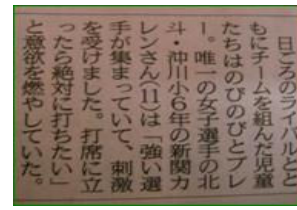 日ごろのライバルとと
もにチームを組んだ児童
たちはのびのびとプレ
ー。唯一の女子選手の北
斗・沖川小6年の新関カ
レンさん(11)は「強い選
手が集まっていて、刺激
を受けました。打席に立
ったら絶対に打ちたい」
と意欲を燃やしていた。